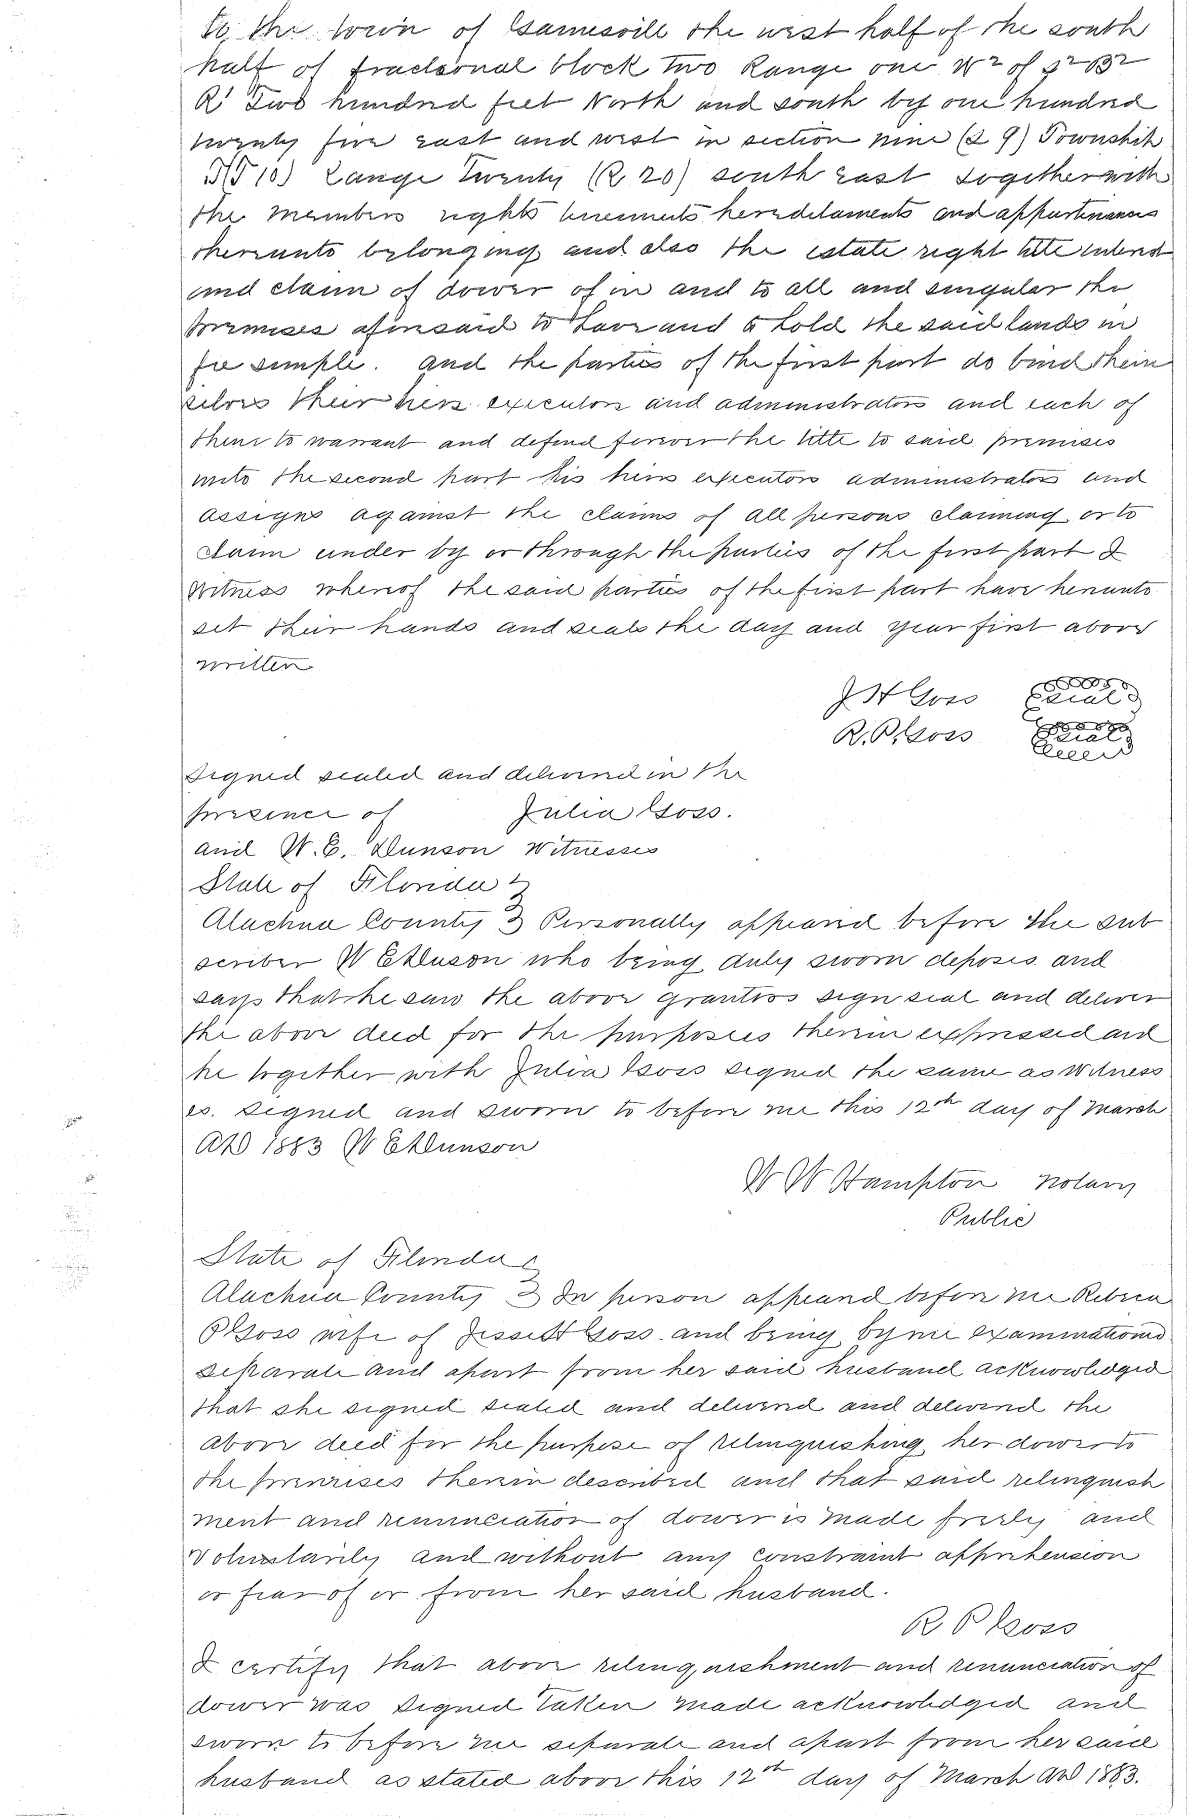 to the town of Gainesvill the west half of the south
half of fractional block two Range one W2 of S2 B2
R1 Two hundred feet North and south by one hundred
twenty five east and west in section nine (S 9) Township
T(T10) Range Twenty (R 20) south East together with
the members rights tenements heredetaments and appurtinances
thereunto belonging and also the estate right title interest
and claim of dower of in and to all and singular the
premises aforesaid to have and to hold the said lands in
fee simple. and the parties of the first part do bind them
selves their heirs executors and administrators and each of
them to warrant and defend forever the title to said premises
unto the second part his heirs executors administrators and
assigns against the claims of all persons claiming or to
claim under by or through the parties of the first part I
Witness whereof the said parties of the first part have hereunto
set their hands and seals the day and year first above
written
J H Goss Seal
R. P. Goss Seal
Signed sealed and delivered in the
presence of Julia Goss.
and W. E. Dunson Witnesses
State of Florida
Alachua County } Personally appeared before the sub
scriber W E Duson who being duly sworn deposes and
says that he saw the above grantors sign seal and deliver
the above deed for the purposes therein expressed and
he together with Julia Goss signed the same as Witness
es. Signed and sworn to before me this 12th day of March
AD 1883 W E Dunson
W W Hampton Notary
Public
State of Florida
Alachua County } In person appeared before me Rebecca
P Goss wife of Jesse H Goss and being by me examinationed
separate and apart from her said husband acknowledged
that she signed sealed and delivered and delivered the
above deed for the purpose of relinquishing her dower to
the premises therein described and that said relinquish
ment and renunciation of dower is made freely and
Voluntarily and without any constraint apprehension
or fear of or from her said husband.
R P Goss
I certify that above relinquishment and renunciation of
dower was signed taken made acknowledged and
sworn to before me separate and apart from her said
husband as stated above this 12th day of March AD 1883.